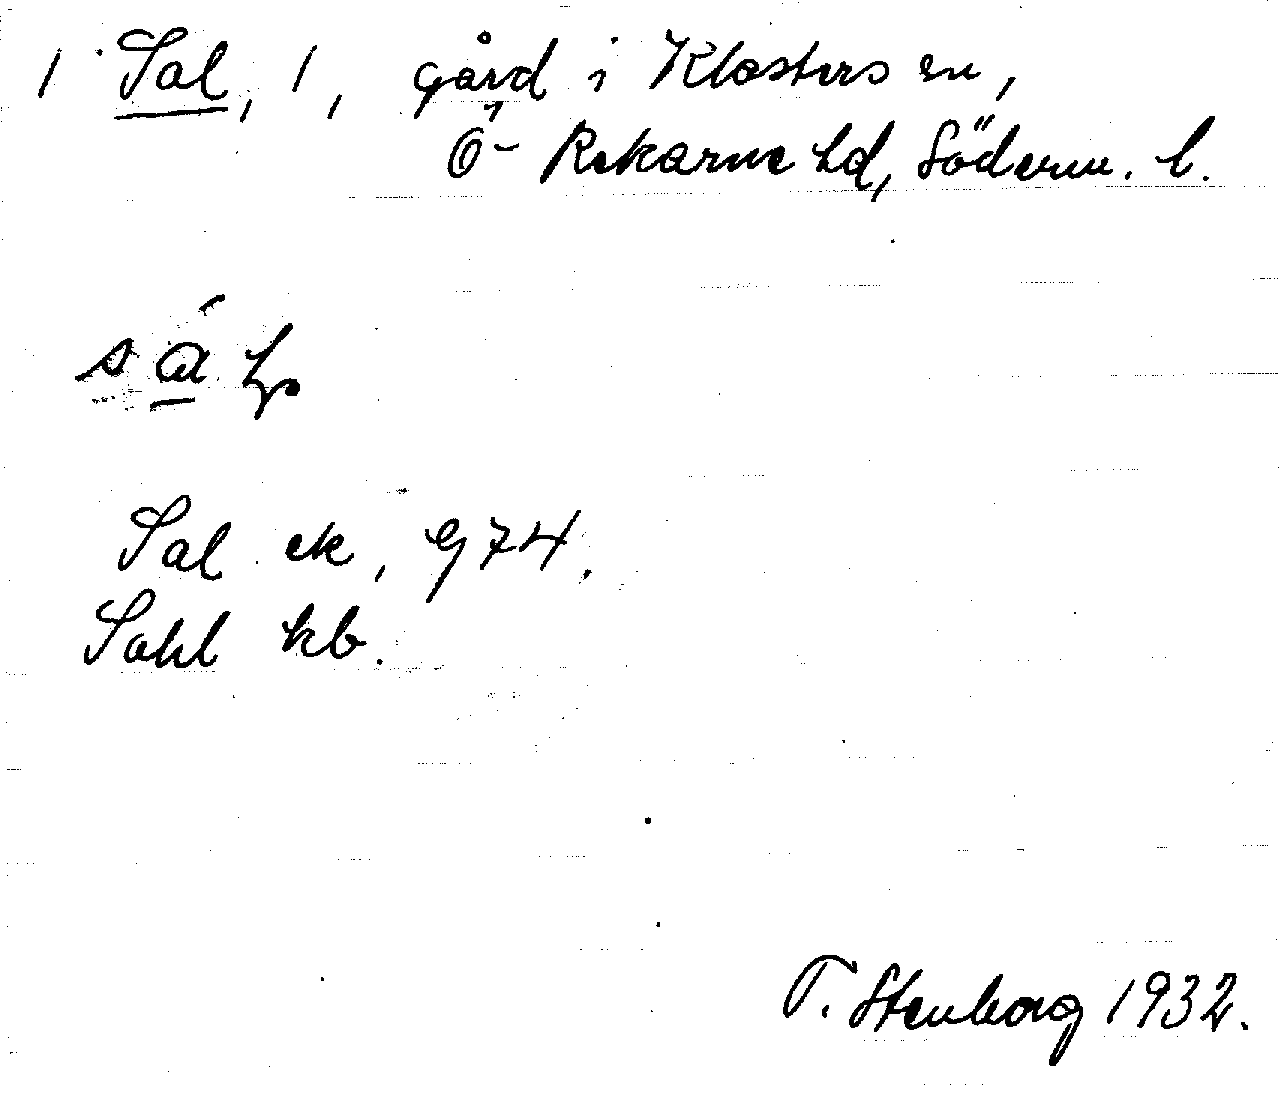 1 Sal, 1, gård i Klosters sn,
Ö- Rekarne hd, Söderm. l.
Sal ek, 974.
Sahl kb.
T. Stenborg 1932.